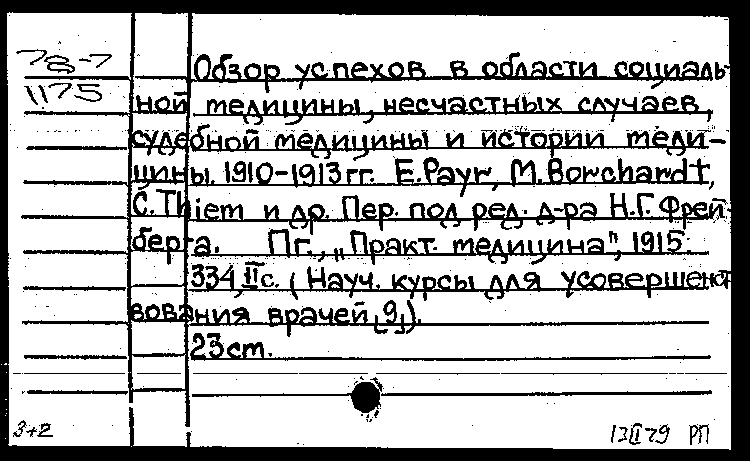 78-7
1175
Обзор успехов в области социаль-
ной медицины, несчастных случаев,
судебной медицины и истории меди-
цины. 1910-1913 гг. E. Payr, M. Borchardt,
C. Thiem и др. Пер. под ред. д-ра Н.Г. Фрей-
берга. Пг., „Практ. медицина", 1915.
334, II с. (Науч. курсы для усовершенст-
вования врачей [9]).
23 см.
3+2
13 II 79 РП